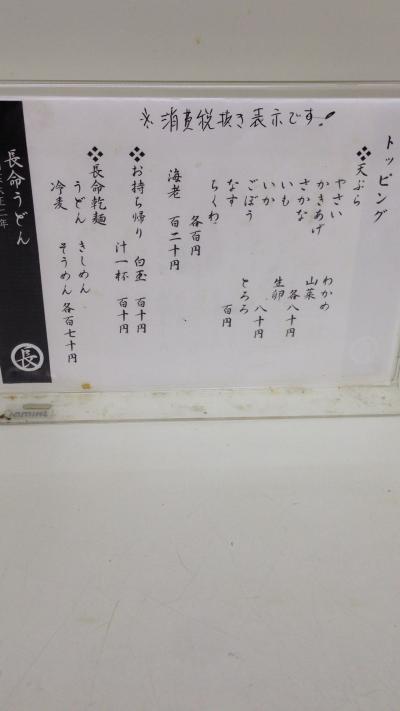 ※消費税抜き表示です!
トッピング
❖天ぷら
やさい
かきあげ
さかな
いも
いか
ごぼう
なす
ちくわ
各百円
海老 百二十円
わかめ
山菜
各八十円
生卵
八十円
とろろ
百円
❖お持ち帰り 白玉 百十円
汁一杯 百十円
❖長命乾麺
うどん きしめん
冷麦 そうめん 各百七十円
長命うどん
長